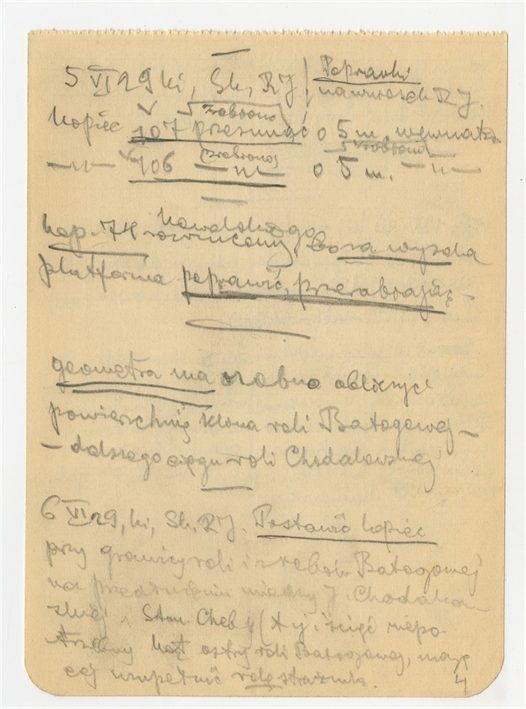 5 VI 29 ki, Sk, RJ, Poprawki
na wniosek RJ.
zrobiono
kopiec 107 przesunąć o 5 m. wewnątrz
(zrobiono) zrobiono
—"— 106 —"— o 5 m. —"—
Kowalskiego
kop. 74 rozrzucony, bo za wysoka
platforma poprawić, przerabiają –
geometra ma osobno obliczyć
powierzchnię klina roli Batogowej –
– dalszego ciągu roli Chodakowskiej
6 VI 29, ki, Sk, RJ. Postawić kopiec
przy granicy roli i zrębów Batogowej
na przedłużeniu miedzy J. Chodako
wskiej i Stan Cheb (tj. ściąć niepo
trzebny kąt ostry roli Batogowej, mają
cej uzupełnić rolę strażnika.
4